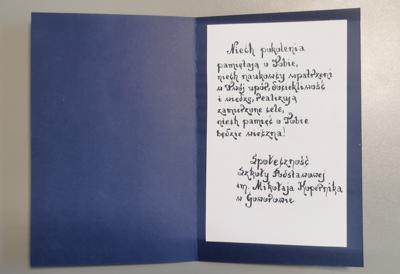 Niech pokolenia
pamiętają o Tobie,
niech naukowcy wpatrzeni
w Twój upór, dociekliwość
i wiedzę, realizują
zamierzone cele,
niech pamięć o Tobie
będzie wieczna!
Społeczność
Szkoły Podstawowej
im. Mikołaja Kopernika
w Goworowie